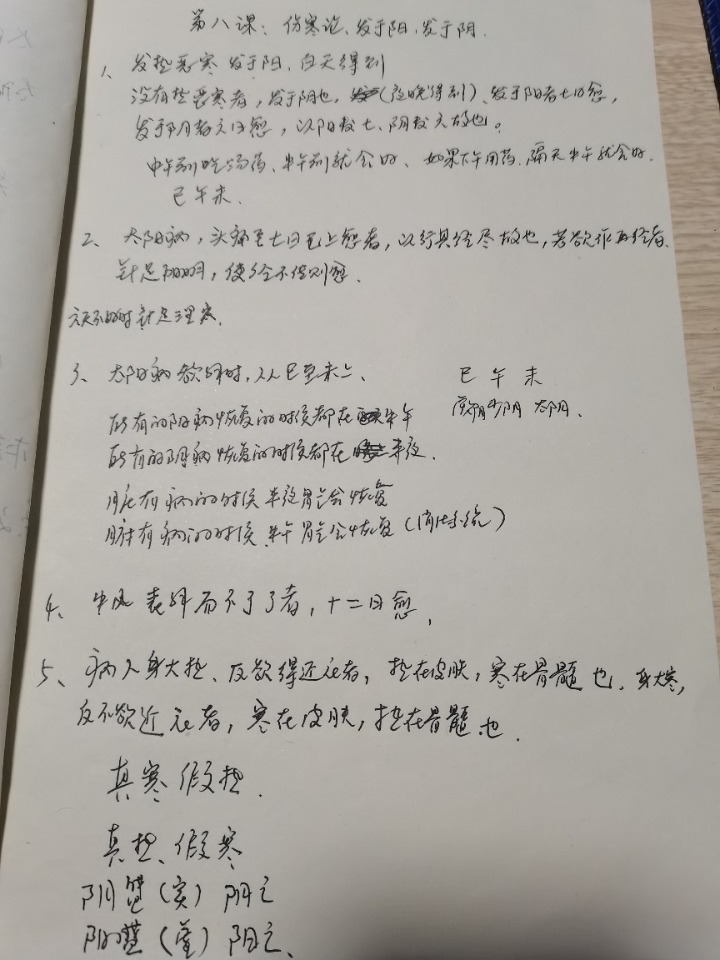 第八课：伤寒论、发于阳，发于阴．
1、发热恶寒发于阳、白天得到
没有热恶寒者，发于阴也，（夜晚得到）、发于阳者七日愈，
发于阴者六日愈，以阳数七、阴数六故也。
中午别吃汤药、半夜就会好、如果下午用药，隔天中午就会好．
巳午未．
2、太阳病，头痛至七日已上愈者，以行其经尽故也，若欲作再经者
针足阳明，使经不传则愈．
针足三里穴．
3、太阳病欲解时，从巳至未上、
巳 午 未
厥阴 少阴 太阴．
所有的阳病恢复的时候都在中午
所有的阴病恢复的时候都在半夜．
脏有病的时候 半夜 会恢复
腑有病的时候 中午 会恢复（消化系统）
4、中风 表解而不了了者，十二日愈，
5、病人身大热、反欲得近衣者，热在皮肤，寒在骨髓也．身大寒，
反不欲近衣者，寒在皮肤，热在骨髓也．
真寒假热．
真热、假寒
阴（实）阴
阳（虚）阳